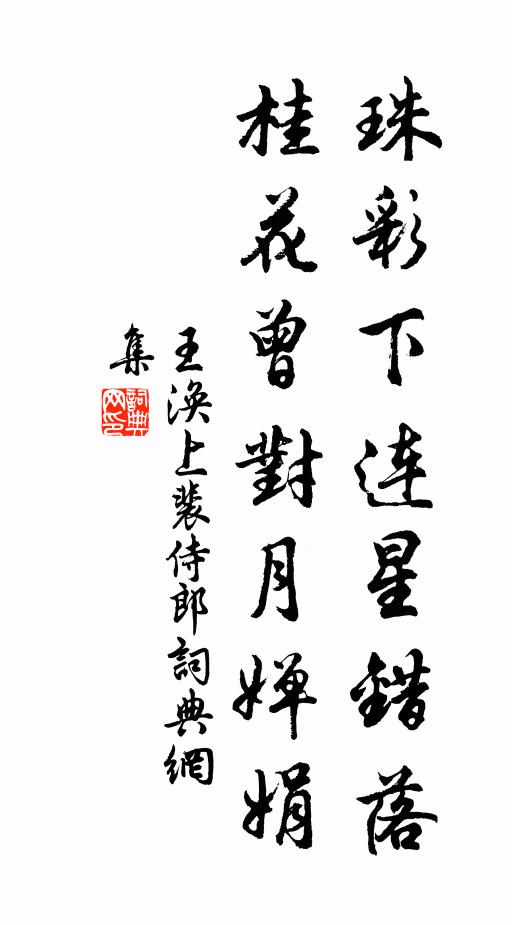 珠彩下连星錯落
桂花曾對月嬋娟
王渙上裴侍郎詞典網
集
詞典
网印